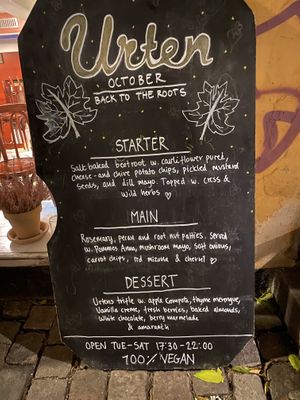 Urten
OCTOBER
BACK TO THE ROOTS
STARTER
Salt baked beetroot w. cauliflower puré,
cheese- and chive potato chips, pickled mustard
seeds, and dill mayo. Topped w. cress &
wild herbs
MAIN
Rosemary, pecan and root nut patties. Served
w. Pommes Anna, mushroom mayo, salt onions,
carrot chips, red mizuna & chervil
DESSERT
Urtens trifle w. apple compote, thyme merengue,
Vanilla creme, fresh berries, baked almonds,
white chocolate, berry marmelade
& amaranth
OPEN TUE-SAT 17:30-22:00
100% VEGAN